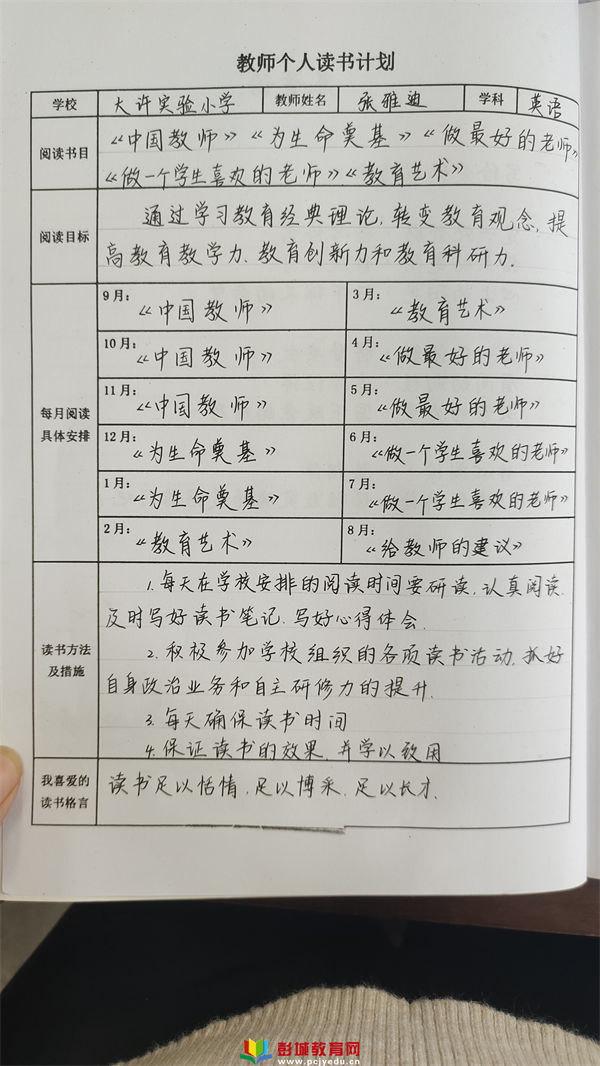 教师个人读书计划
学校 大许实验小学 教师姓名 张雅迪 学科 英语
阅读书目
《中国教师》《为生命奠基》《做最好的老师》
《做一个学生喜欢的老师》《教育艺术》
阅读目标
通过学习教育经典理论,转变教育观念,提
高教育教学力、教育创新力和教育科研力.
每月阅读
具体安排
9月:《中国教师》 3月:《教育艺术》
10月:《中国教师》 4月:《做最好的老师》
11月:《中国教师》 5月:《做最好的老师》
12月:《为生命奠基》 6月:《做一个学生喜欢的老师》
1月:《为生命奠基》 7月:《做一个学生喜欢的老师》
2月:《教育艺术》 8月:《给教师的建议》
读书方法
及措施
1.每天在学校安排的阅读时间要研读,认真阅读
及时写好读书笔记.写好心得体会.
2.积极参加学校组织的各项读书活动.抓好
自身政治业务和自主研修力的提升.
3.每天确保读书时间
4.保证读书的效果.并学以致用
我喜爱的
读书格言
读书足以恬情,足以博采,足以长才.
彭城教育网
www.pcjyedu.cn